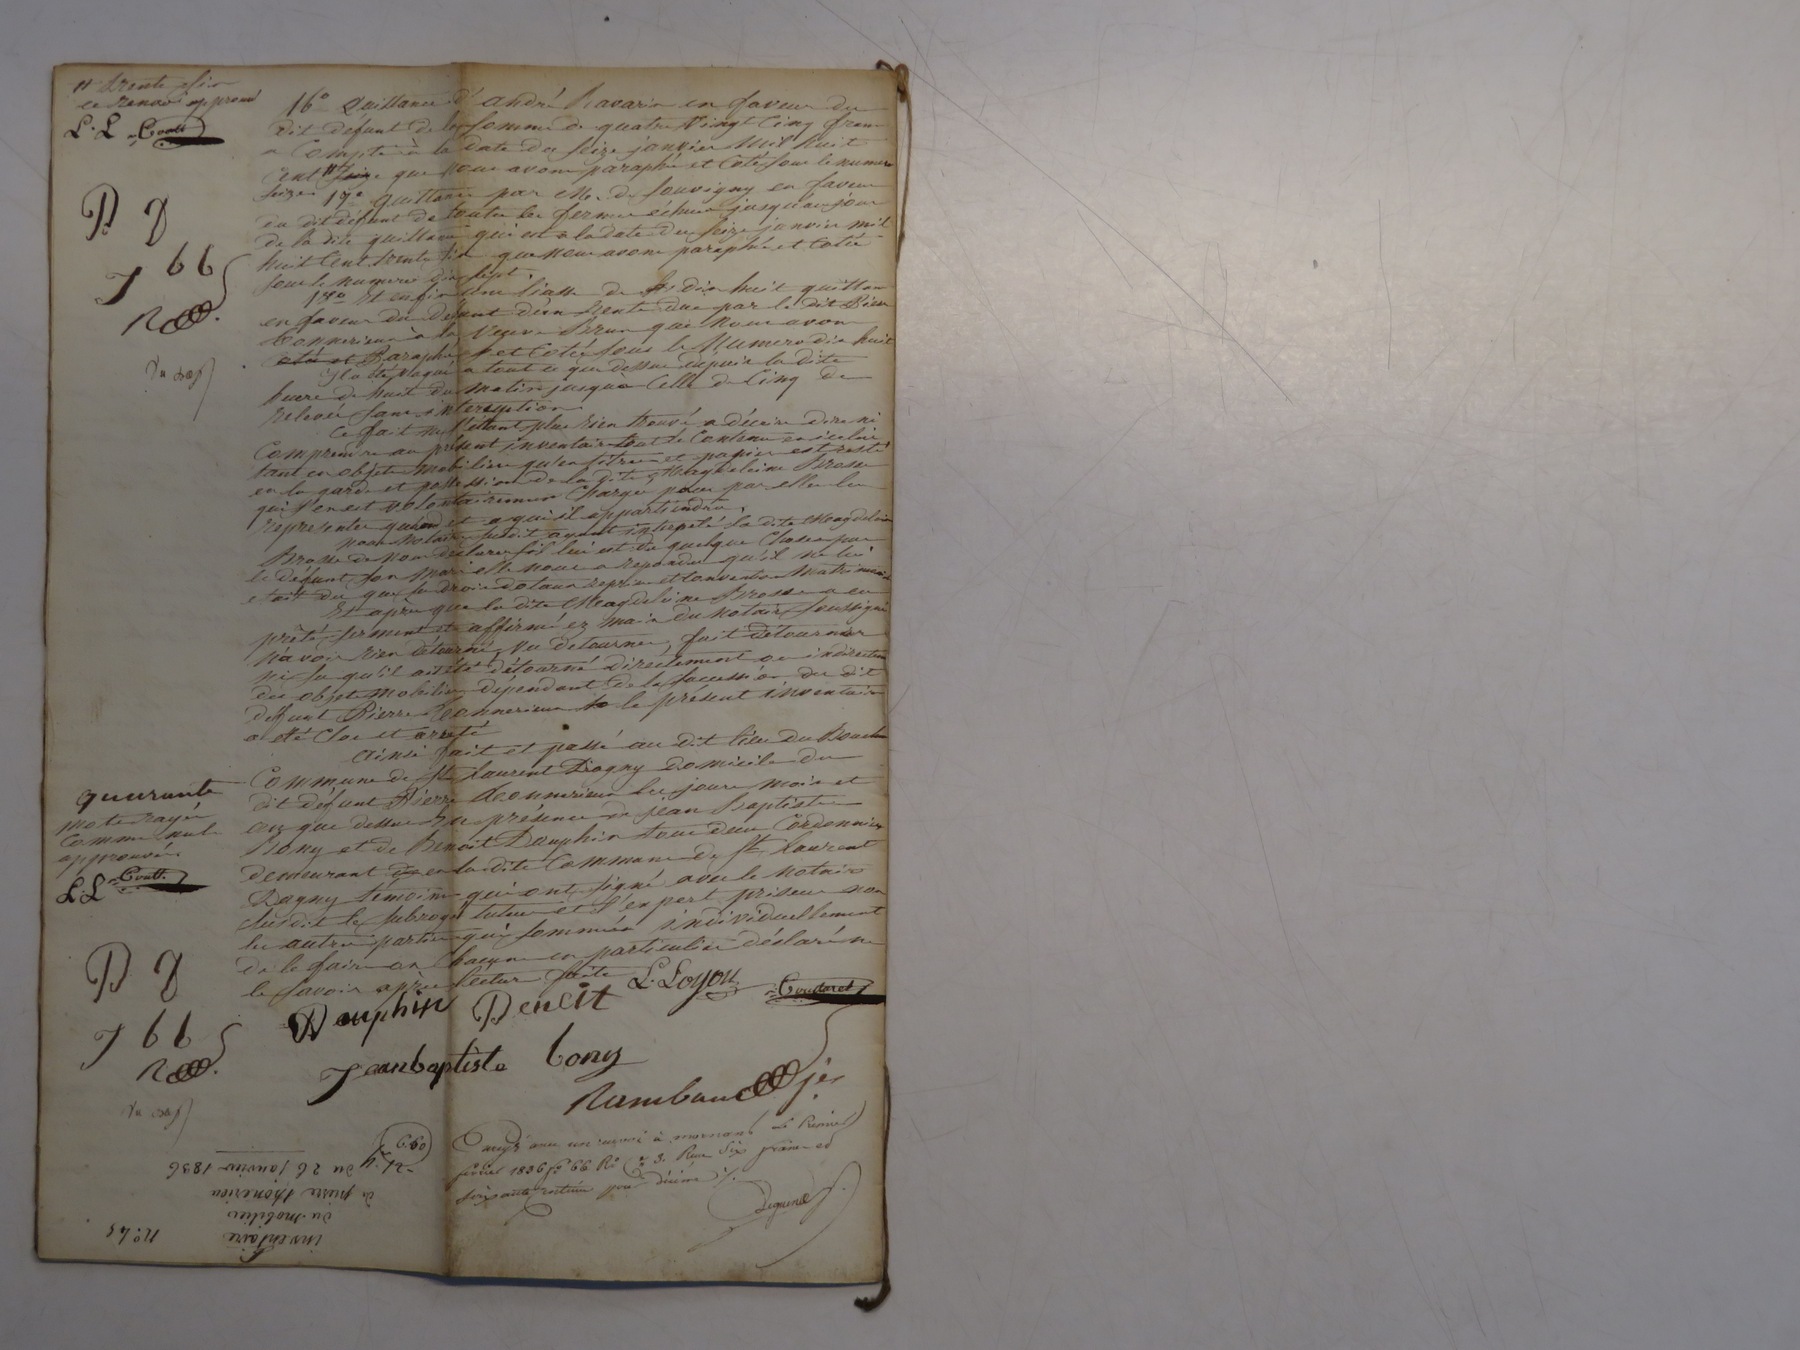 # trente six
ce renvoi approuvé
L. L Coutt
16° Quittance d'andré Ravarin en faveur du
dit défunt de la somme de quatre Vingt Cinq franc
a Compte à la date du seize janvier Mil huit
Cent # que nous avons paraphé et Coté sous le numero
seize 17° Quittance par Mr. de Souvigny en faveur
du dit défunt de toutes les fermes échues jusqu'au jour
de la dite quittance qui est à la date du seize janvier mil
huit Cent trente six que nous avons paraphé et Cotée
sous le numero dix sept.
18° Et enfin une liasse de dix huit quittan
en faveur du défunt d'un Rente due par le dit Pierre
à la Veuve Brun que nous avons
coté et Paraphé et Cotée sous le Numero dix huit
Il a été Vaqué a tout ce que dessus depuis la dite
heure de huit du matin jusqu'à Celle de Cinq de
Relevée sans interuption
Ce fait ne s'étant plus rien trouvé a décrire dire ni
Comprendre au présent inventaire tout le Contenu en icelui
tant en objets mobiliers qu'en titres et papier est resté
en la garde et possession de la dite Magdeleine Brosse
qui s'en est volontairement Chargée pour par elle les
representer quand et a qui il appartiendra.
nous Notaire susdit ayant interpelé la dite Magdeleine
Brosse de nous déclarer s'il lui est dû quelque Chose par
le défunt son mari elle nous a repondu qu'il ne lui
etait du que ses droits dotaux reprises et Convention Matrimoni
Et après que la dite Magdeleine Brosse a eu
prêté serment et affirmé ez mains du notaire soussigné
n'avoir rien détourné, vu detourner, fait détourner
ni su qu'il ait été détourné directement ou indirectem
des objets mobiliers dépendant de la succession du dit
deffunt Pierre le présent inventaire
a été Clos et arreté
ainsi fait et passé au dit lieu du Bouch
Commune de St. Laurent Dagny Domicile du
dit défunt Pierre les jours mois et
an que dessus En présence de jean Baptiste
Bony et de Benoit Dauphin tous deux Cordonniers
demeurant en la dite Commune de St. Laurent
Dagny témoins qui ont signé avec le notaire
susdit le subrogé tuteur et l'expert priseur non
les autres parties qui sommées individuellement
de le faire on Chacune en particulier déclaré ne
le savoir après lecture faite
L. Loyou
Dauphin Benoit
Jeanbaptiste bony
Rambaud
P D
J bb
quarante
mots rayés
Comme nuls
approuvés
L L Coutt
P D
J bb
Enregé avec un renvoi à mornant le Premier
février 1836 fo 66 Ro Ce 3. Reçu six francs et
soixante centimes pour décime
N° 45
inventaire
du mobilier
de pierre
du 26 Janvier 1836